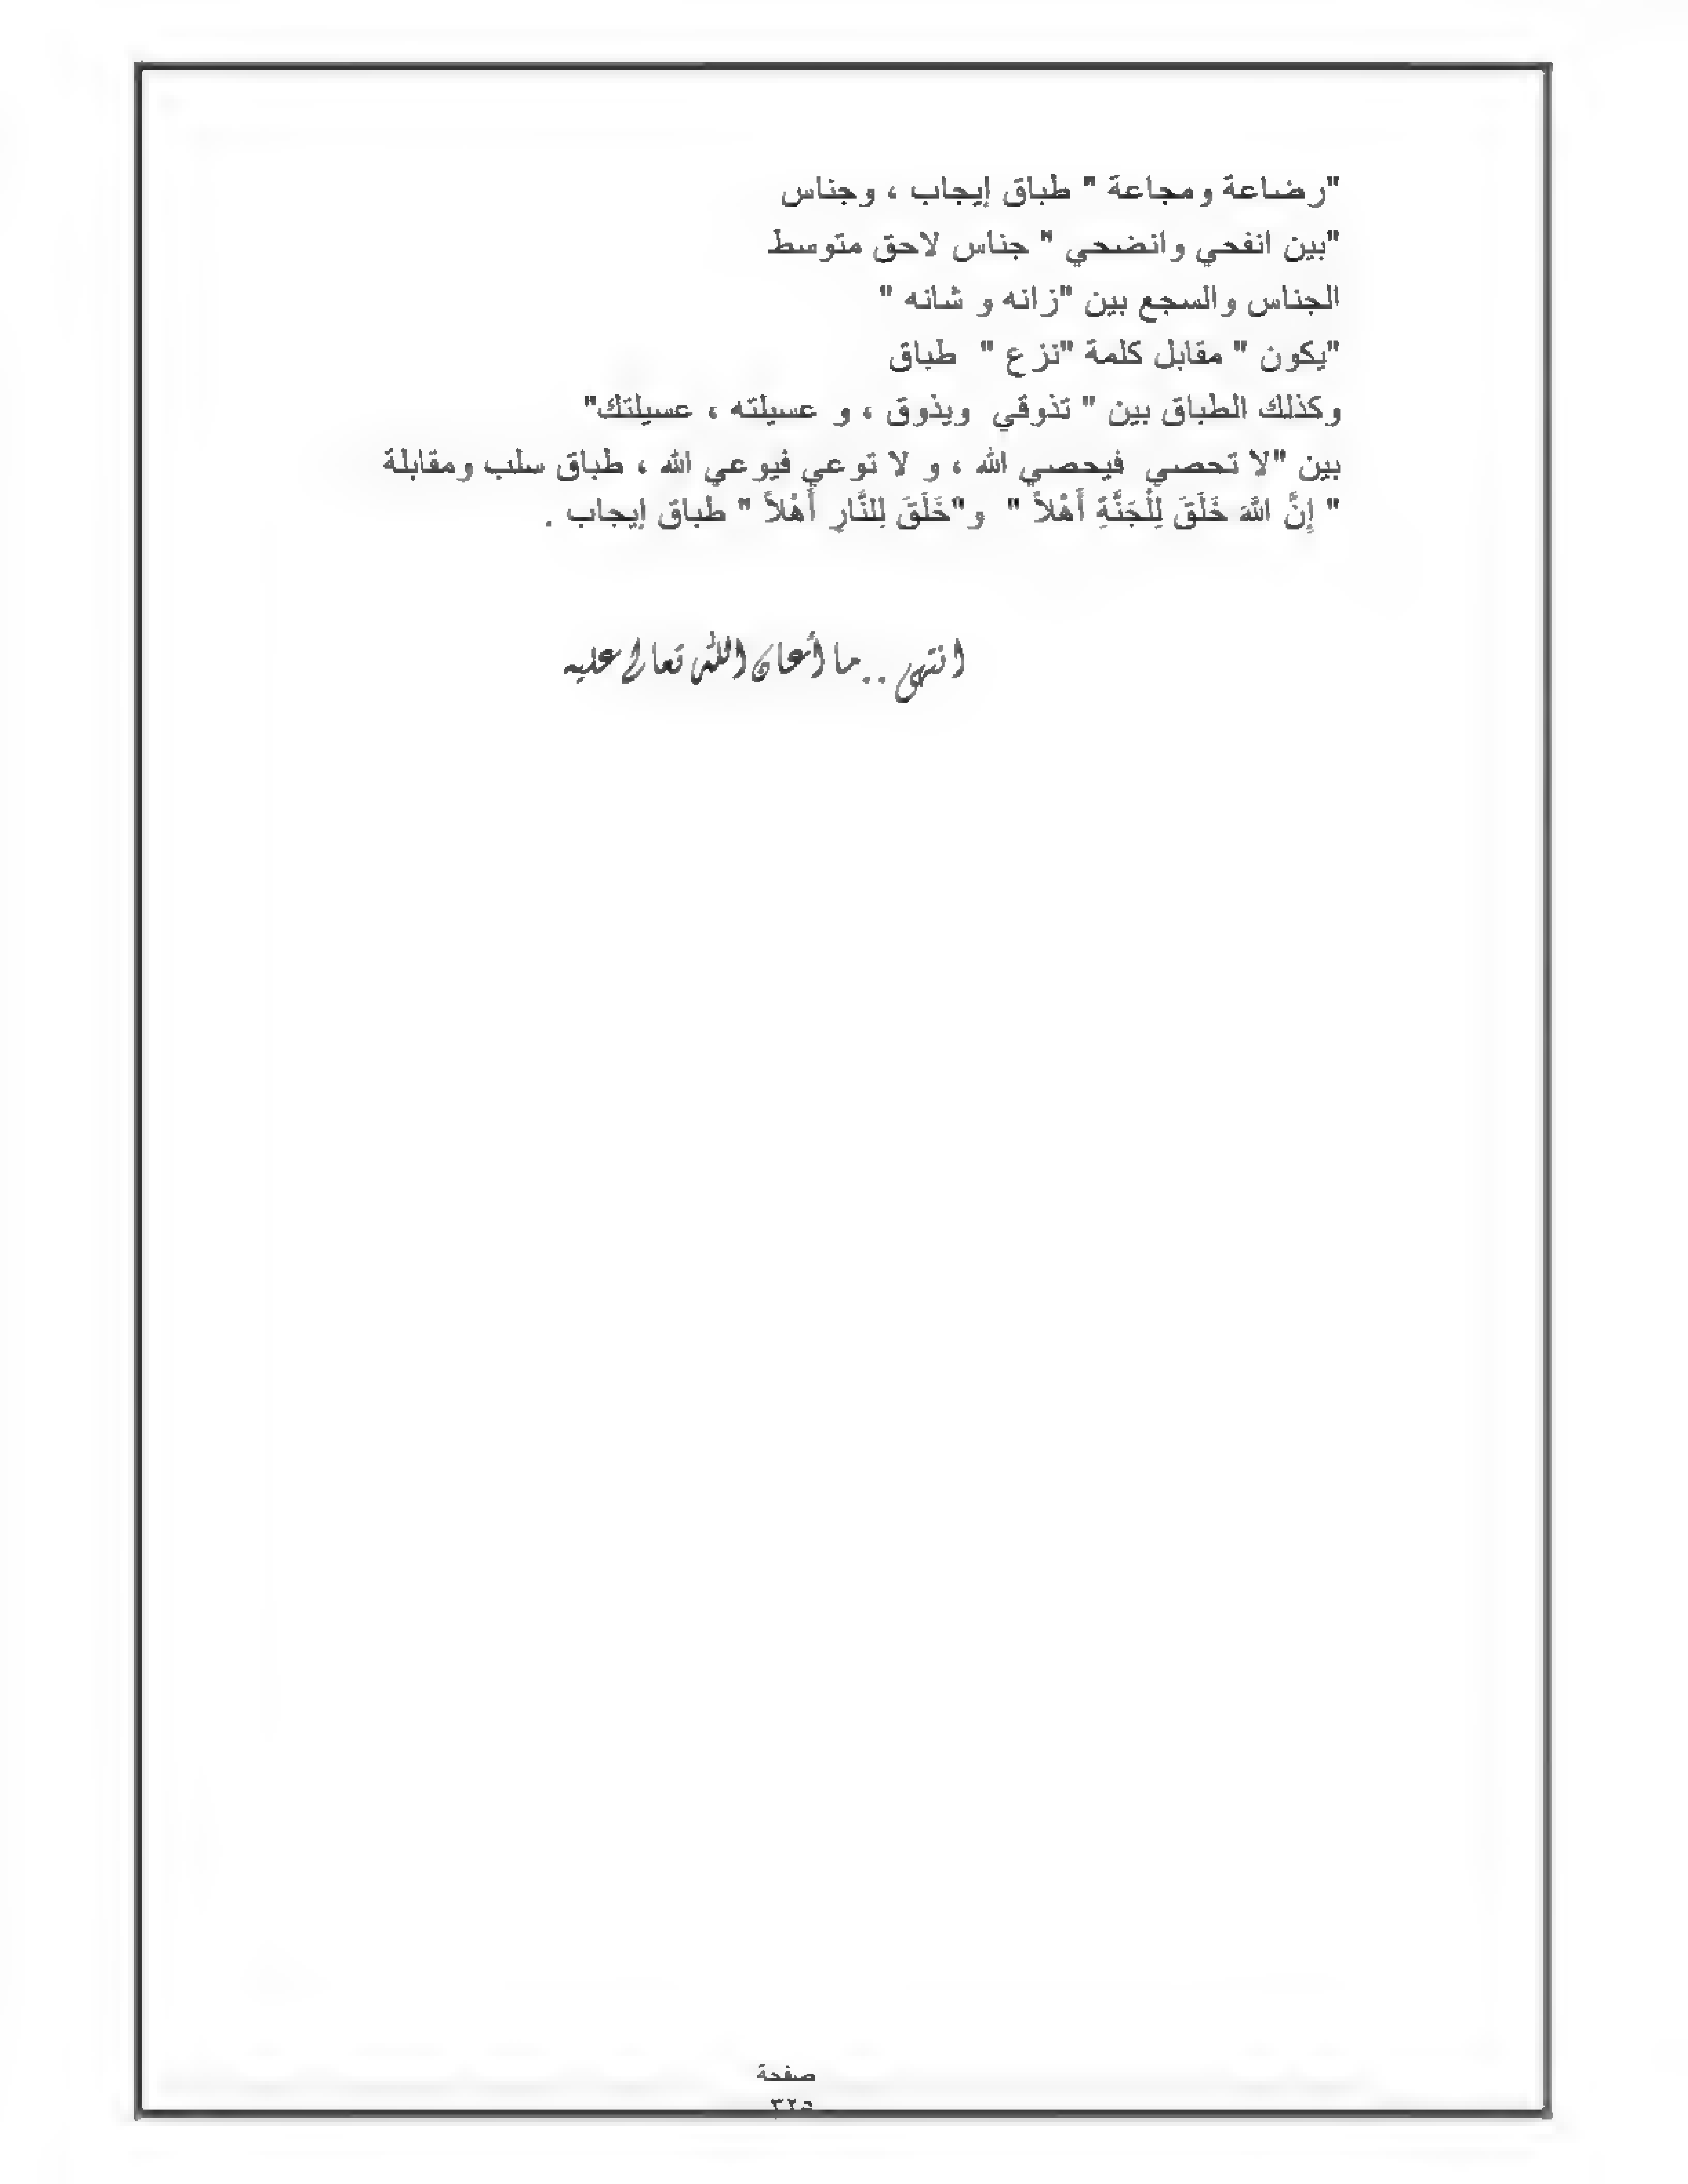 "رضاعة ومجاعة " طباق إيجاب ، وجناس
"بين انفحي وانضحي " جناس لاحق متوسط
الجناس والسجع بين "زانه و شانه "
"يكون " مقابل كلمة "نزع " طباق
وكذلك الطباق بين " تذوقي ويذوق ، و عسيلته ، عسيلتك"
بين "لا تحصي فيحصي الله ، و لا توعي فيوعي الله ، طباق سلب ومقابلة
" إِنَّ اللَّهَ خَلَقَ لِلْجَنَّةِ أَهْلاً " و"خَلَقَ لِلنَّارِ أَهْلاً " طباق إيجاب .
انتهى .. ما أعان الله تعالى عليه
صفحة
٣٢٥